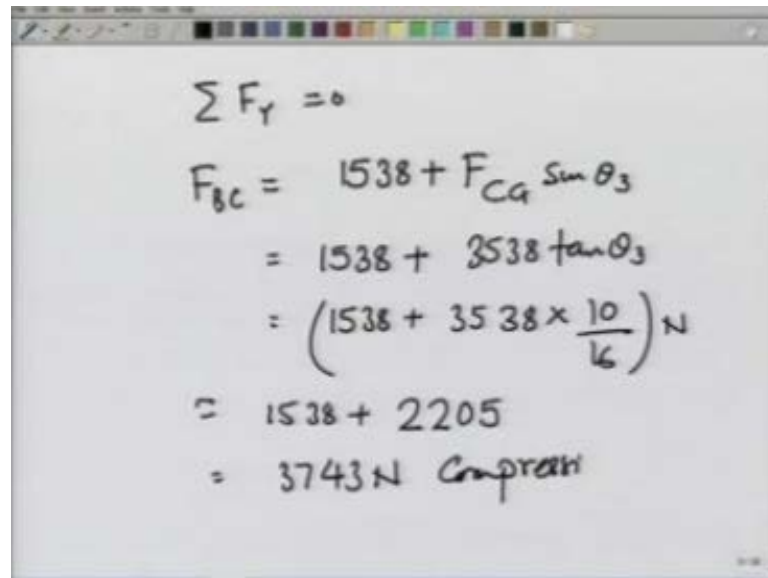 Σ F_Y = 0
F_BC = 1538 + F_CG Sin θ₃
= 1538 + 3538 tan θ₃
= (1538 + 3538 × 10/16) N
= 1538 + 2205
= 3743 N Compressi